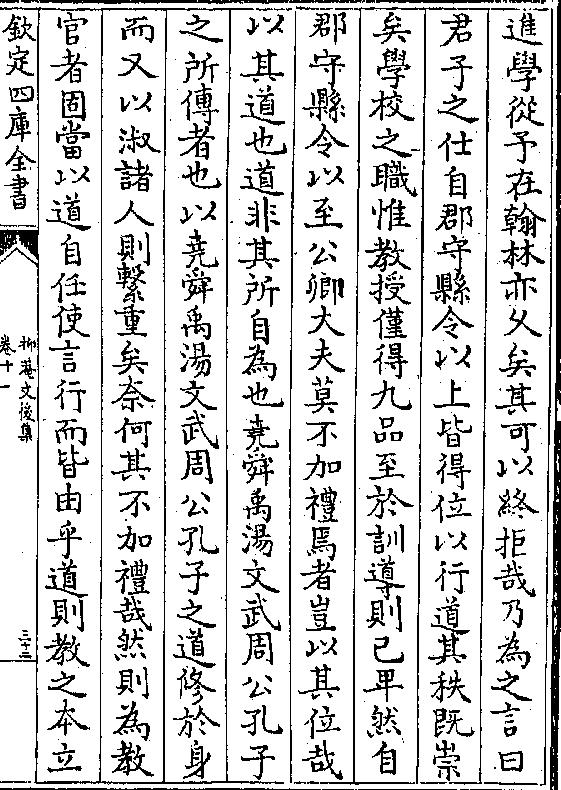 進學從予在翰林亦久矣其可以終拒哉乃為之言曰
君子之仕自郡守縣令以上皆得位以行道其秩既崇
矣學校之職惟教授僅得九品至於訓導則已卑然自
郡守縣令以至公卿大夫莫不加禮焉者豈以其位哉
以其道也道非其所自為也堯舜禹湯文武周公孔子
之所傳者也以堯舜禹湯文武周公孔子之道修於身
而又以淑諸人則繫重矣奈何其不加禮哉然則為教
官者固當以道自任使言行而皆由乎道則教之本立
欽定四庫全書
抑菴文後集
卷十一
三十二